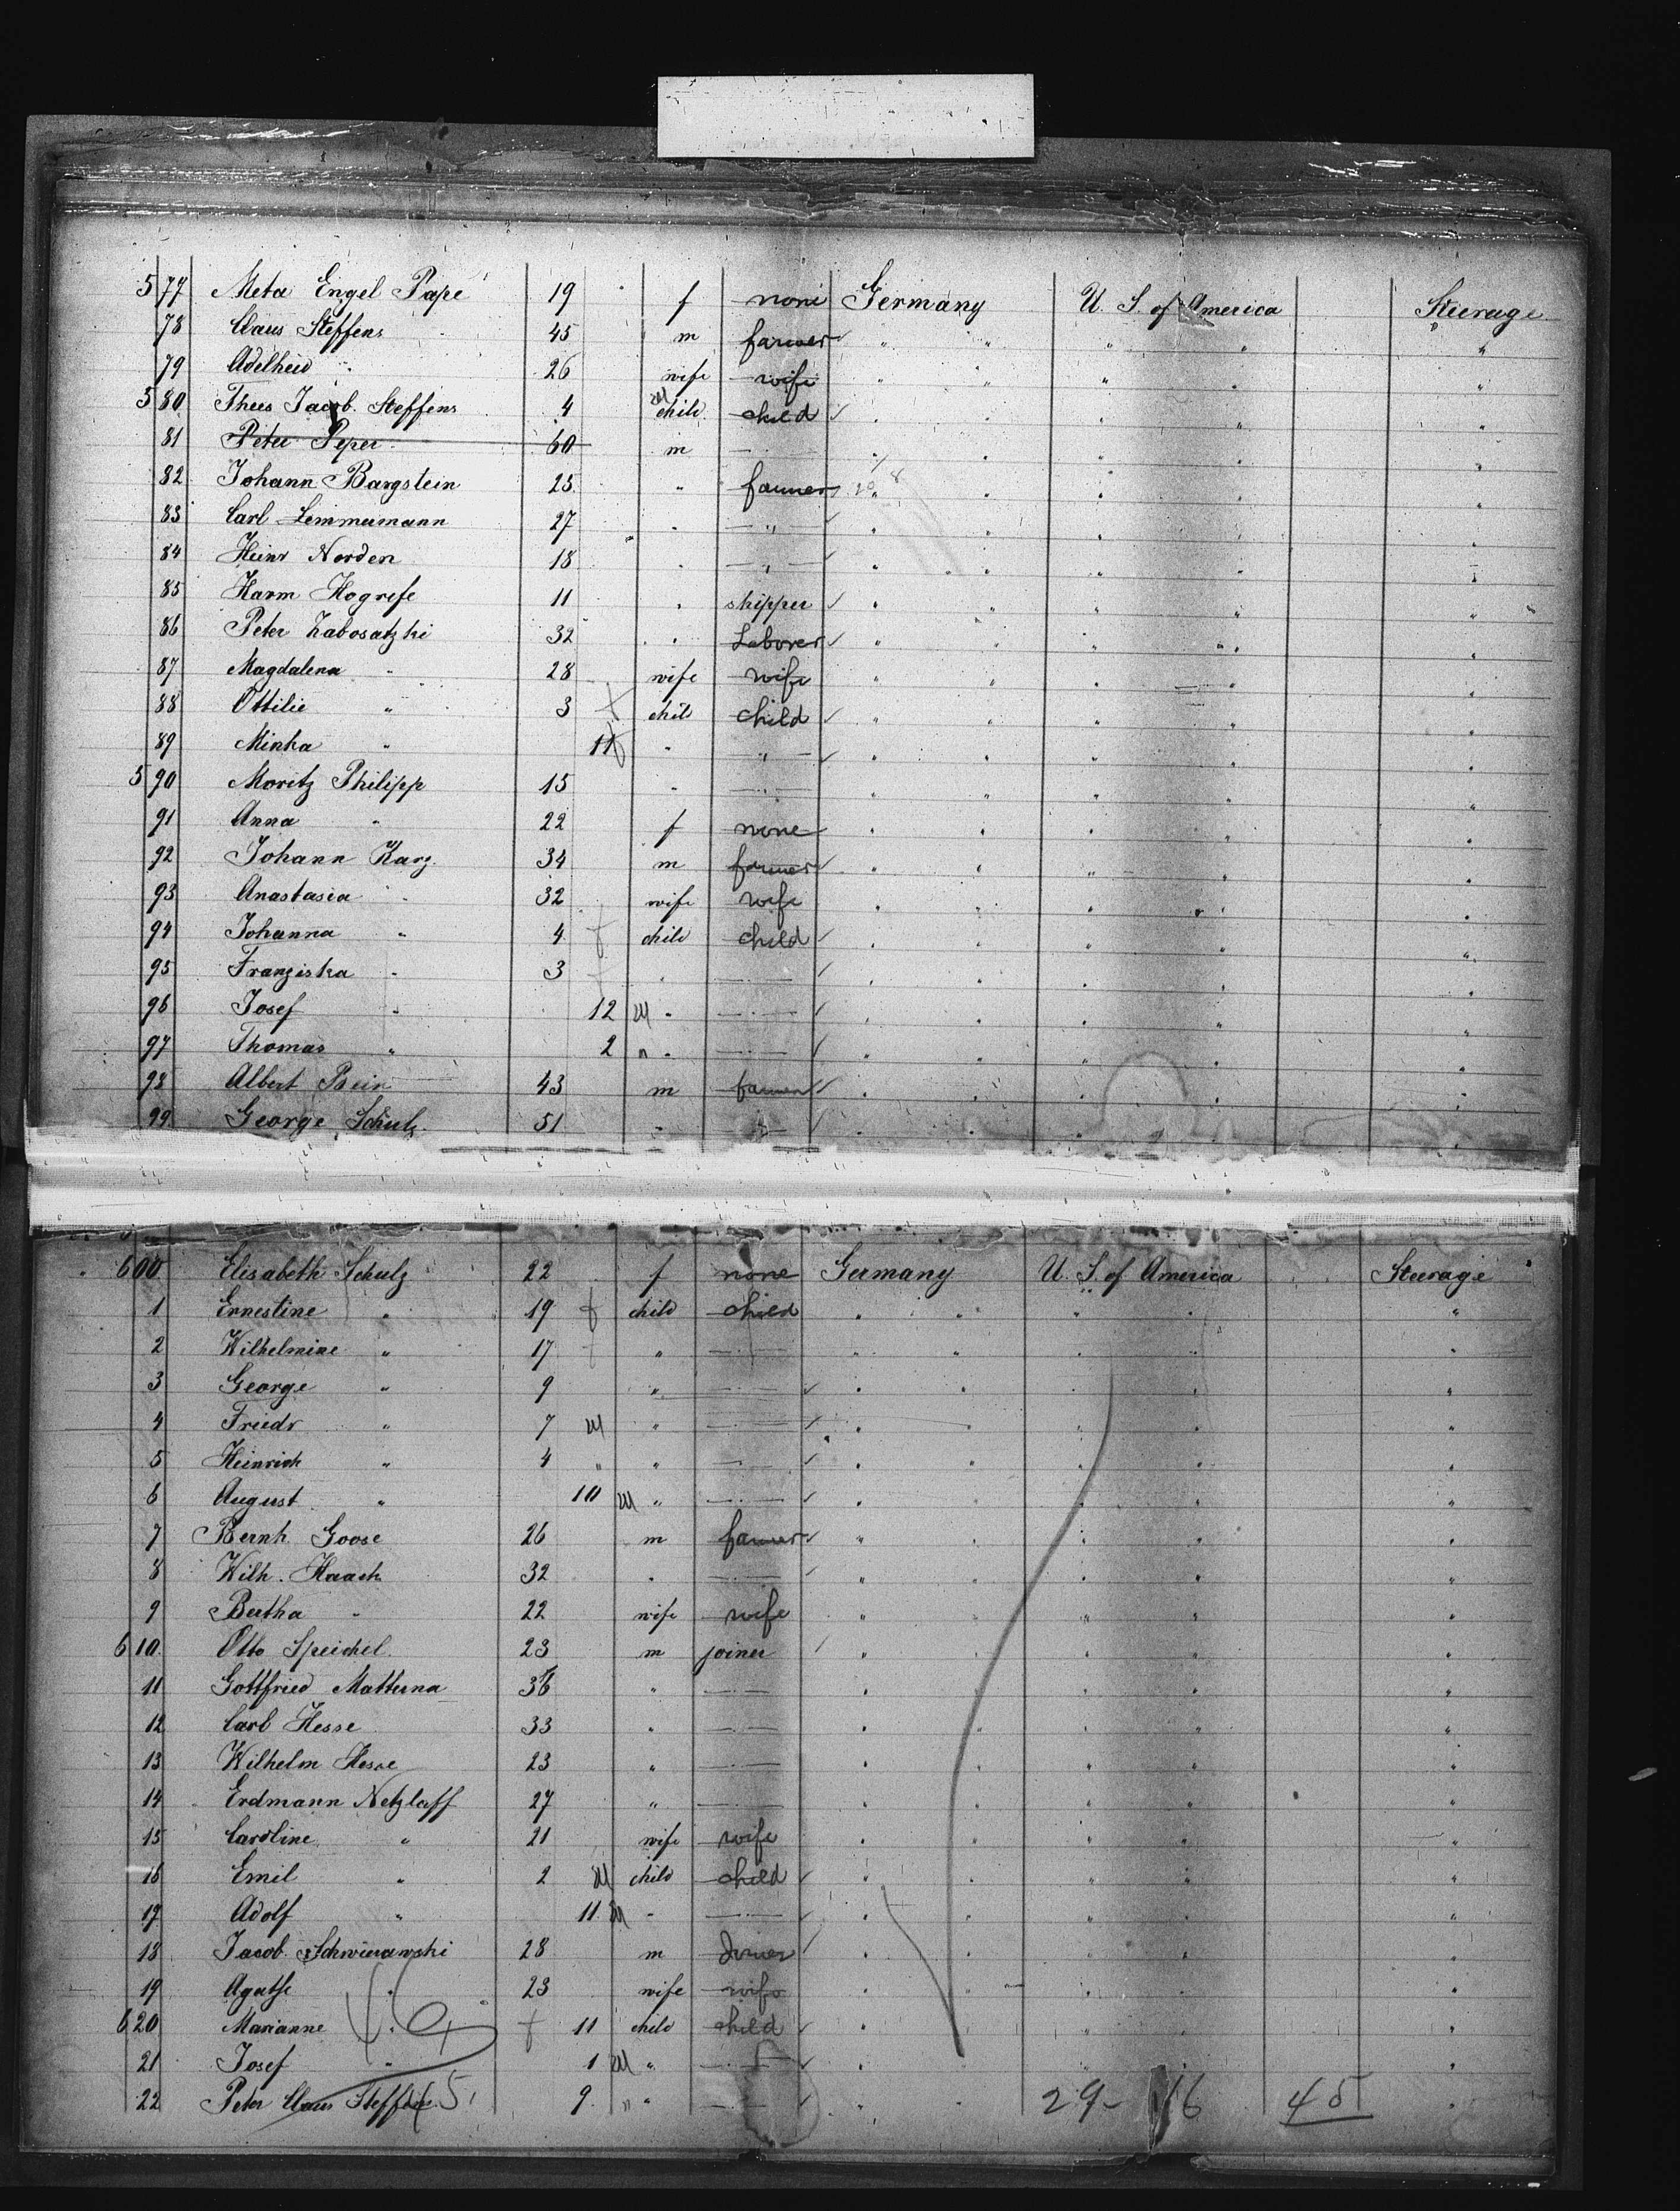 577 Meta Engel Pape 19 f none Germany U. S. of America Steerage
78 Claus Steffens 45 m farmer " " " " "
79 Adelheid " 26 wife wife " " " " "
580 Thees Jacob Steffens 4 M child child " " " " "
81 Peter Peper 60 m — " " " " "
82 Johann Bargstein 25 " farmer " " " " "
83 Carl Lemmermann 27 " " " " " " "
84 Heinr Norden 18 " " " " " " "
85 Harm Hogrefe 11 " skipper " " " " "
86 Peter Zabosatzki 32 " Laborer " " " " "
87 Magdalena " 28 wife wife " " " " "
88 Ottilie " 3 f child child " " " " "
89 Minka " 11 f " " " " " " "
590 Moritz Philipp 15 " " " " " " "
91 Anna " 22 f none " " " " "
92 Johann Karg 34 m farmer " " " " "
93 Anastasia " 32 wife wife " " " " "
94 Johanna " 4 f child child " " " " "
95 Franziska " 3 f " " " " " " "
96 Josef " 12 M " " " " " " "
97 Thomas " 2 " " " " " " " "
98 Albert Bein 43 m farmer " " " " "
99 George Schulz 51 " " " " " " "
600 Elisabeth Schulz 22 f none Germany U. S. of America Steerage
1 Ernestine " 19 f child child " " " " "
2 Wilhelmine " 17 f " " " " " " "
3 George " 9 " " " " " " "
4 Friedr " 7 M " " " " " " "
5 Heinrich " 4 " " " " " " " "
6 August " 10 M " " " " " " "
7 Bernh Goose 26 m farmer " " " " "
8 Wilh. Haack 32 " " " " " " "
9 Bertha " 22 wife wife " " " " "
610 Otto Speichel 23 m joiner " " " " "
11 Gottfried Matterna 36 " " " " " " "
12 Carl Hesse 33 " " " " " " "
13 Wilhelm Hesse 23 " " " " " " "
14 Erdmann Netzlaff 27 " " " " " " "
15 Caroline " 21 wife wife " " " " "
16 Emil " 2 M child child " " " " "
17 Adolf " 11 M " " " " " " "
18 Jacob 28 m " " " " "
19 Agathe " 23 wife wife " " " " "
620 Marianne " f 11 child child " " " " "
21 Josef " 1 M " " " " " " "
22 Peter Claus Steffens 9 " " " " " 29- 16 45 "